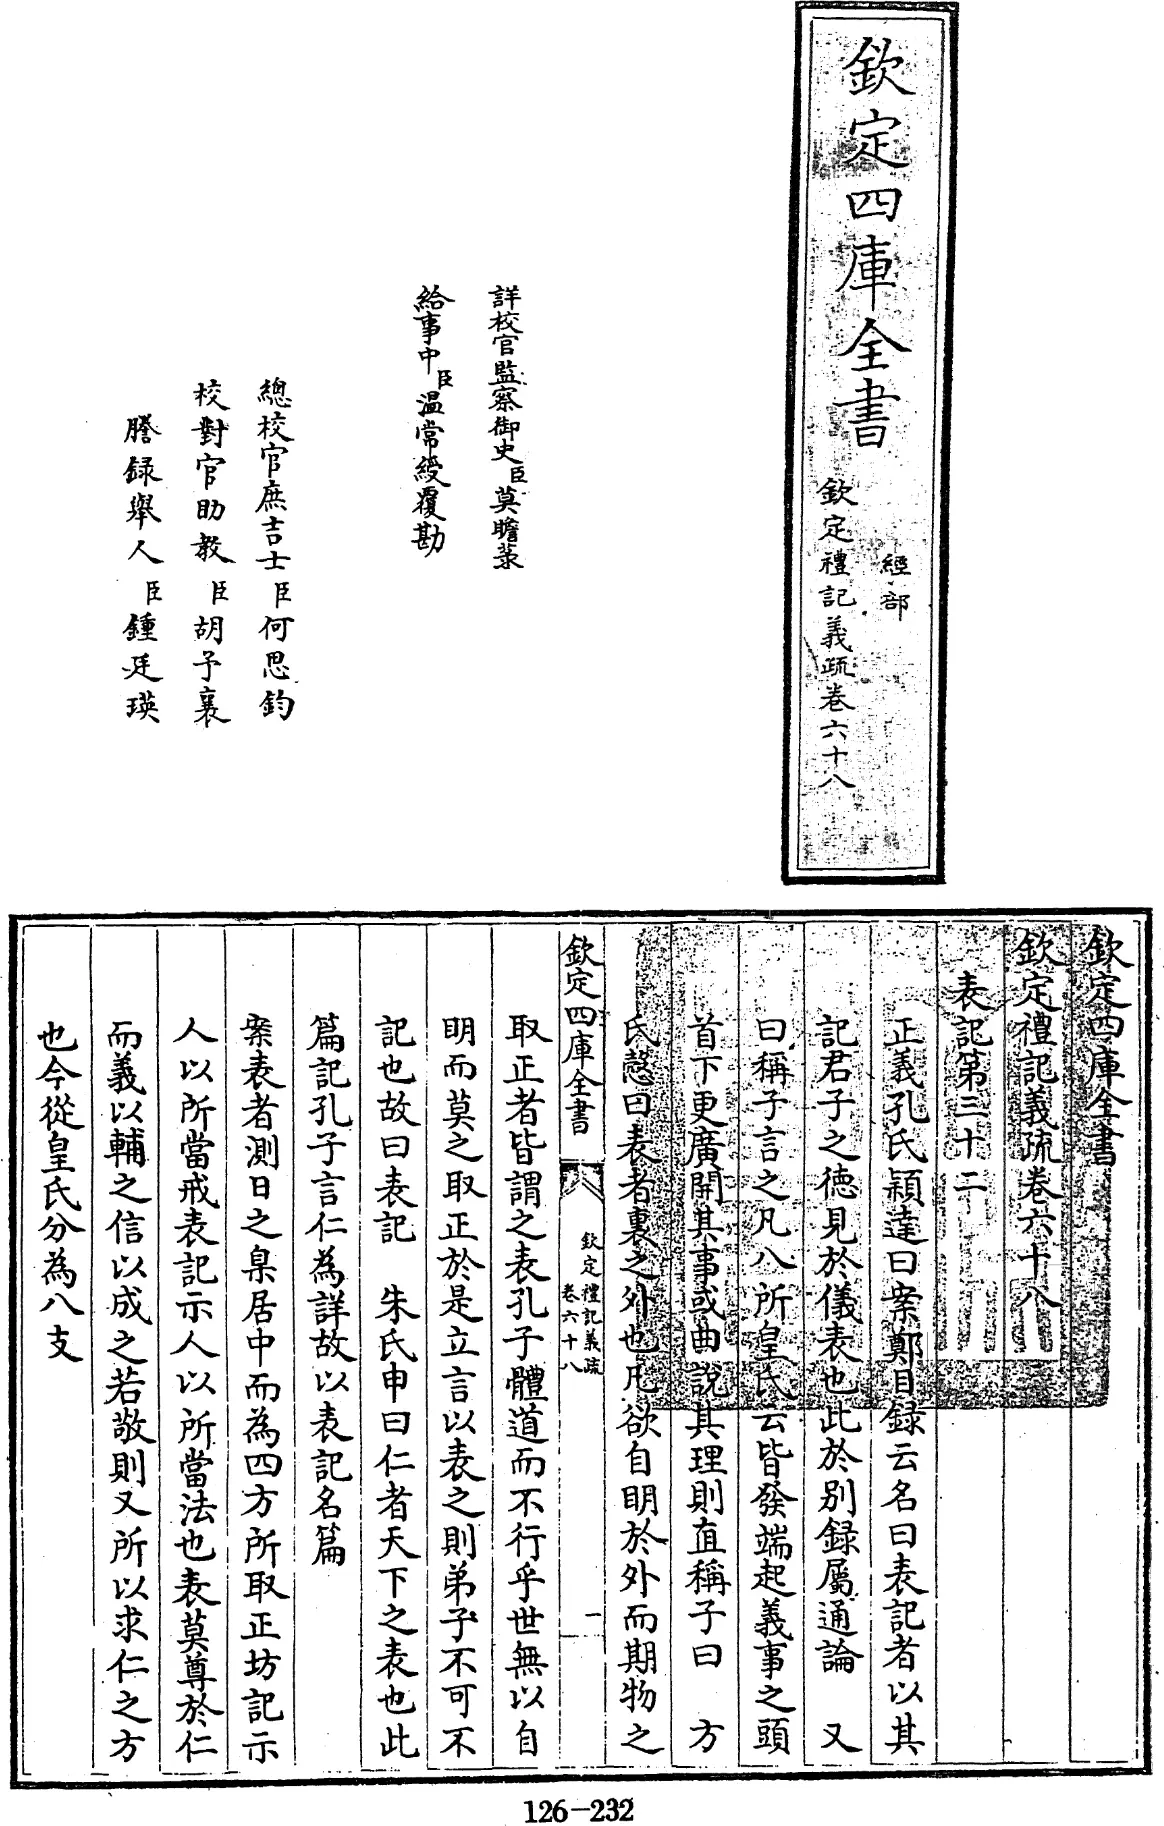 欽定四庫全書
經部
欽定禮記義疏卷六十八
詳校官監察御史臣莫瞻菉
給事中臣温常綬覆勘
總校官庶吉士臣何思鈞
校對官助教臣胡子襄
謄録舉人臣鍾廷瑛
欽定四庫全書
欽定禮記義疏卷六十八
表記第三十二
正義孔氏穎達曰案鄭目録云名曰表記者以其
記君子之徳見於儀表也此於别録屬通論 又
曰稱子言之凡八所皇氏云皆發端起義事之頭
首下更廣開其事或曲說其理則直稱子曰 方
氏慤曰表者裏之外也凡欲自明於外而期物之
欽定四庫全書
欽定禮記義疏
卷六十八
一
取正者皆謂之表孔子體道而不行乎世無以自
明而莫之取正於是立言以表之則弟子不可不
記也故曰表記 朱氏申曰仁者天下之表也此
篇記孔子言仁為詳故以表記名篇
案表者測日之臬居中而為四方所取正坊記示
人以所當戒表記示人以所當法也表莫尊於仁
而義以輔之信以成之若敬則又所以求仁之方
也今從皇氏分為八支
126-232